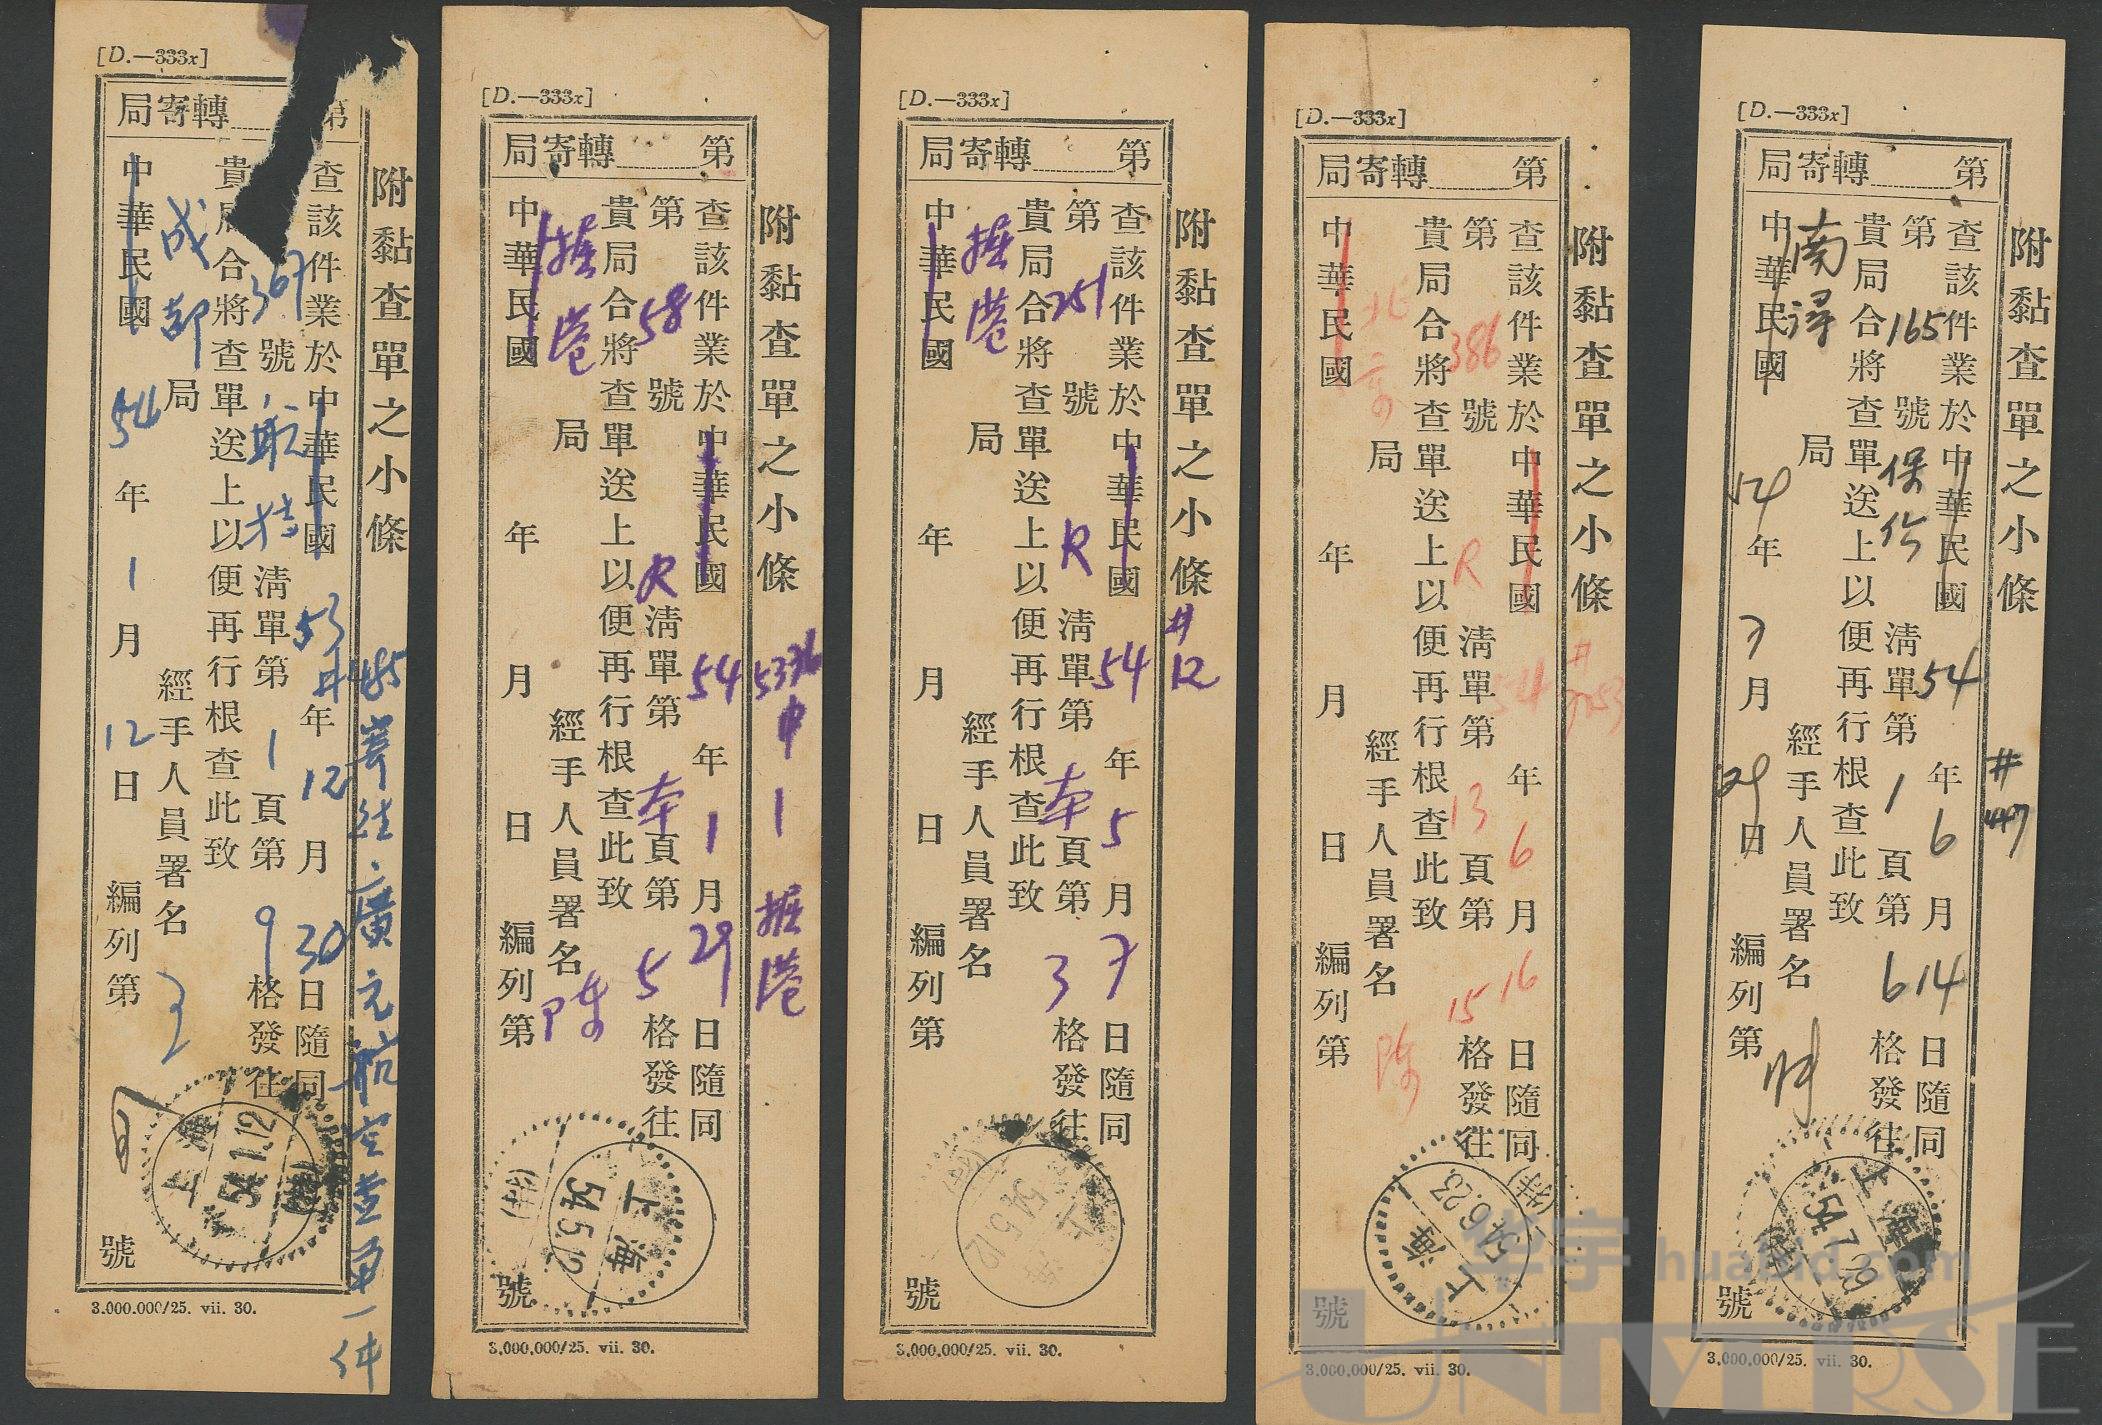 [D.—333x]
第 轉寄局
附黏查單之小條
#485寄往廣元航空查單一件
查該件業於中華民國53年12月30日隨同
367號航掛清單第1頁第9格發往
貴局合將查單送上以便再行根查此致
成都局
經手人員署名
中華民國54年1月12日
編列第 號
上海
54.1.12
3.000.000/25. vii. 30.
[D.—333x]
第 轉寄局
附黏查單之小條
掘港
查該件業於中華民國54年1月29日隨同
第58號R清單第本頁第5格發往
貴局合將查單送上以便再行根查此致
掘港局
經手人員署名 陈
中華民國 年 月 日
編列第 號
上海
54.5.12
3.000.000/25. vii. 30.
[D.—333x]
第 轉寄局
附黏查單之小條 #12
查該件業於中華民國54年5月7日隨同
第251號R清單第本頁第3格發往
貴局合將查單送上以便再行根查此致
掘港局
經手人員署名
中華民國 年 月 日
編列第 號
上海
54.5.12
3.000.000/25. vii. 30.
[D.—333x]
第 轉寄局
附黏查單之小條
查該件業於中華民國54年6月16日隨同
第386號R清單第13頁第15格發往
貴局合將查單送上以便再行根查此致
北京局
經手人員署名 陈
中華民國 年 月 日
編列第 號
上海
54.6.23
3.000.000/25. vii. 30.
[D.—333x]
第 轉寄局
附黏查單之小條 #447
查該件業於中華民國54年6月14日隨同
第165號保价清單第1頁第6格發往
貴局合將查單送上以便再行根查此致
南潯局
經手人員署名
中華民國54年7月29日
編列第 號
上海
54.7.29
3.000.000/25. vii. 30.
华宇 huabid.com
UNIVERSE